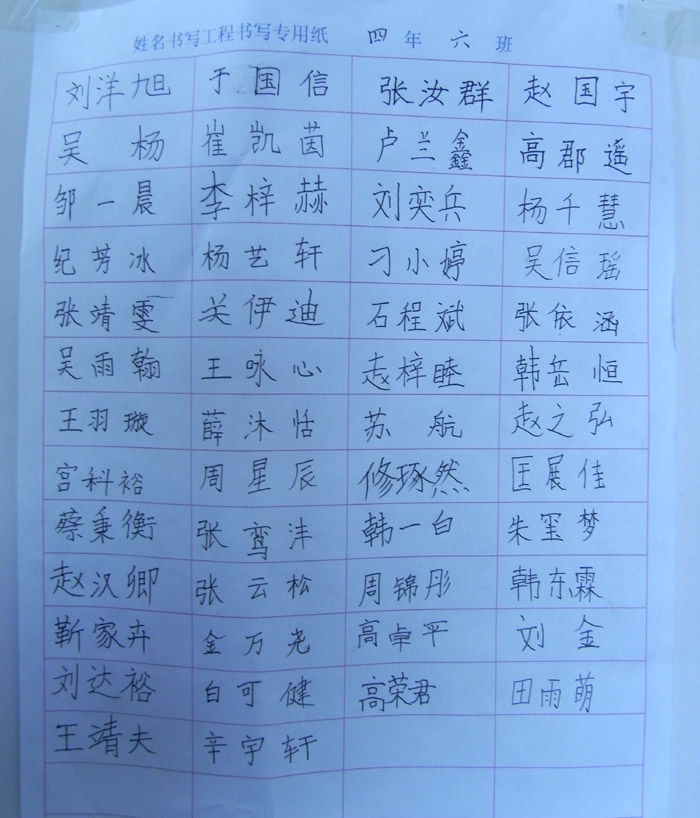 姓名书写工程书写专用纸 四 年 六 班
刘洋旭 于国信 张汝群 赵国宇
吴杨 崔凯茵 卢兰鑫 高郡遥
邹一晨 李梓赫 刘奕兵 杨千慧
纪芳冰 杨艺轩 刁小婷 吴信瑶
张靖雯 关伊迪 石程斌 张依涵
吴雨翰 王咏心 赵梓睦 韩岳恒
王羽璇 薛沐恬 苏航 赵之弘
宫科裕 周星辰 修琢然 匡展佳
蔡秉衡 张鸾沣 韩一白 朱玺梦
赵汉卿 张云松 周锦彤 韩东霖
靳家卉 金万尧 高卓平 刘金
刘达裕 白可健 高荣君 田雨萌
王靖夫 辛宇轩